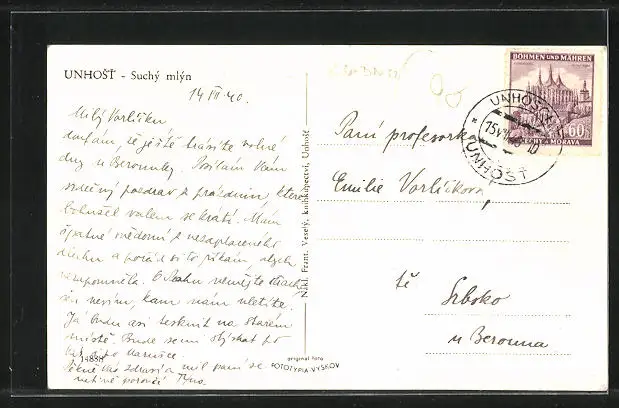 UNHOŠŤ - Suchý mlýn
14 VII 40.
Milý Vorlíčku
doufám, že ještě trávíte volné
dny u Berounky. Posílám Vám
srdečný pozdrav z prázdnin, které
bohužel valem se krátí. Mám
špatné svědomí z nezaplaceného
dluhu a pořád si to říkám abych
nezapomněla. O
nevím, kam nám uletíte.
Já budu asi na starém
místě. Bude se mi stýskat po
Vás
Pěkně Vás zdraví a
14838
Nákl. Frant. Veselý, knihkupectví, Unhošť
original foto
FOTOTYPIA VYŠKOV
BÖHMEN UND MÄHREN
60
ČECHY A MORAVA
UNHOŠŤ
UNHOŠŤ
Paní profesorka
Emilie Vorlíčková,
Srbsko
u Berouna